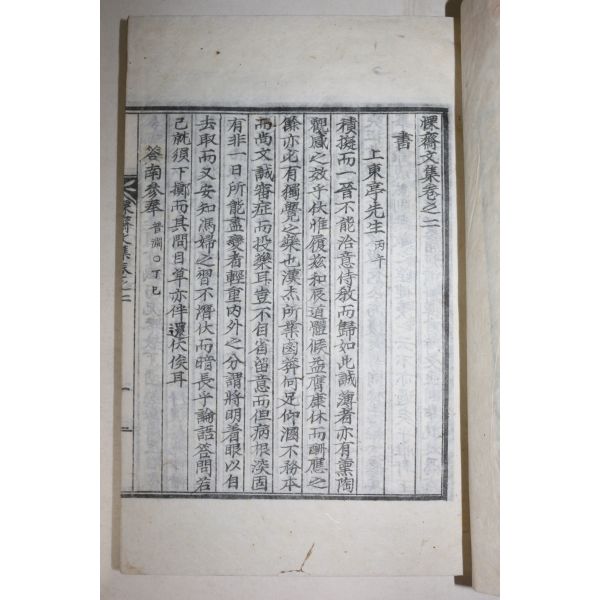 課齋文集卷之二
書
上東亭先生 丙午
積擬而一晉不能洽意侍敎而歸如此誠薄者亦有熏陶
觀感之效乎伏惟履玆和辰道體候益膺康休而酬應之
餘亦必有獨覺之樂也漢杰所業鹵莽何足仰溷不務本
而尚文誠審症而投藥耳豈不自省留意而但病根深固
有非一日所能盡變者輕重內外之分謂將明着眼以自
去取而又安知馮婦之習不潛伏而暗長乎論語答問若
已就須下擲而其間目草亦伴還伏俟耳
答南參奉 普淵○丁巳
課齋文集卷之二